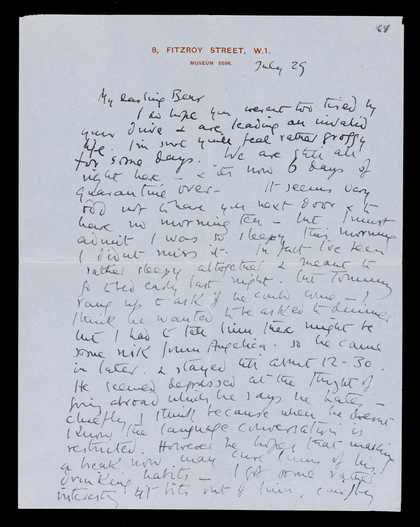 68
8, FITZROY STREET, W.1.
MUSEUM
July 29
My darling Bear
I do hope you weren't too tired by
your drive & are leading an invalid
life. I'm sure you'll feel rather groggy
for some days. We are still all
right here - & it's now 6 days of
quarantine over - It seems very
odd not to have you next door & to
have no morning tea - but I must
admit I was so sleepy this morning
I didn't miss it. In fact I've been
rather sleepy altogether & meant to
go to bed early last night. but Tommy
rang up to ask if he could come - I
think he wanted to be asked to dinner
but I had to tell him there might be
some risk from Angelica. so he came
in later. & stayed till about 12-30.
He seemed depressed at the thought of
going abroad which he says he hates -
chiefly I think because when he doesn't
know the language conversation is
restricted. However he hopes that making
a break now may cure him of his
drinking habits - I got some rather
interesting bits out of him,